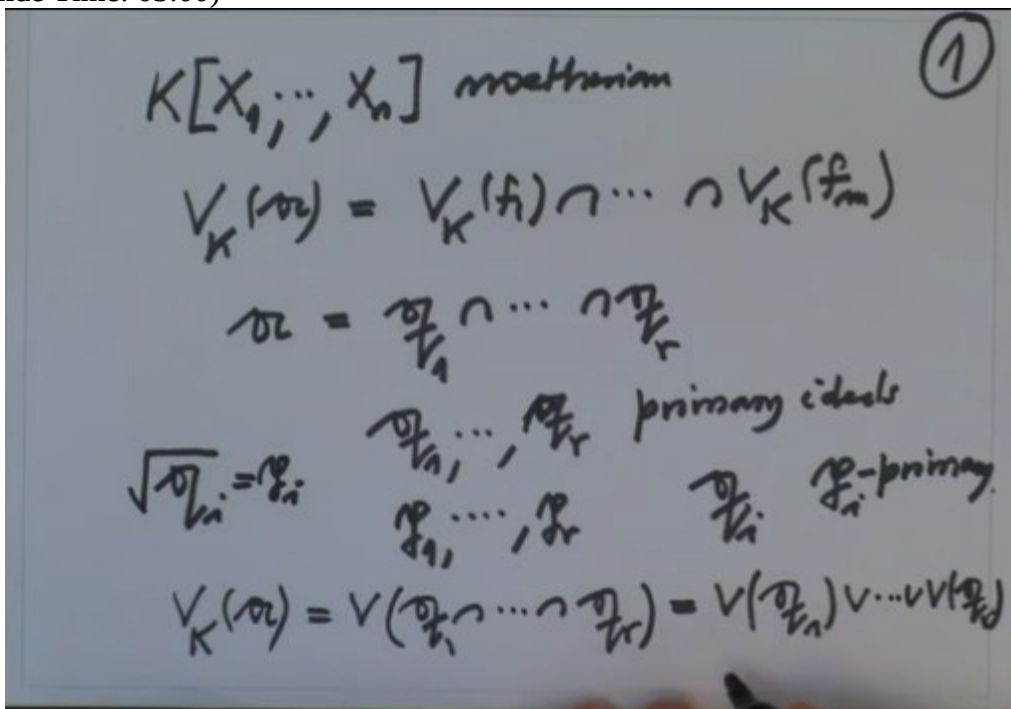 ①
K[X₁,…,Xₙ] noetherian
V_K(𝔞) = V_K(f₁) ∩ ⋯ ∩ V_K(fₘ)
𝔞 = 𝔮₁ ∩ ⋯ ∩ 𝔮ᵣ
𝔮₁,…,𝔮ᵣ primary ideals
√𝔮ᵢ = 𝔭ᵢ 𝔭₁,…,𝔭ᵣ 𝔮ᵢ 𝔭ᵢ-primary.
V_K(𝔞) = V(𝔮₁ ∩ ⋯ ∩ 𝔮ᵣ) = V(𝔮₁) ∪ ⋯ ∪ V(𝔮ᵣ)